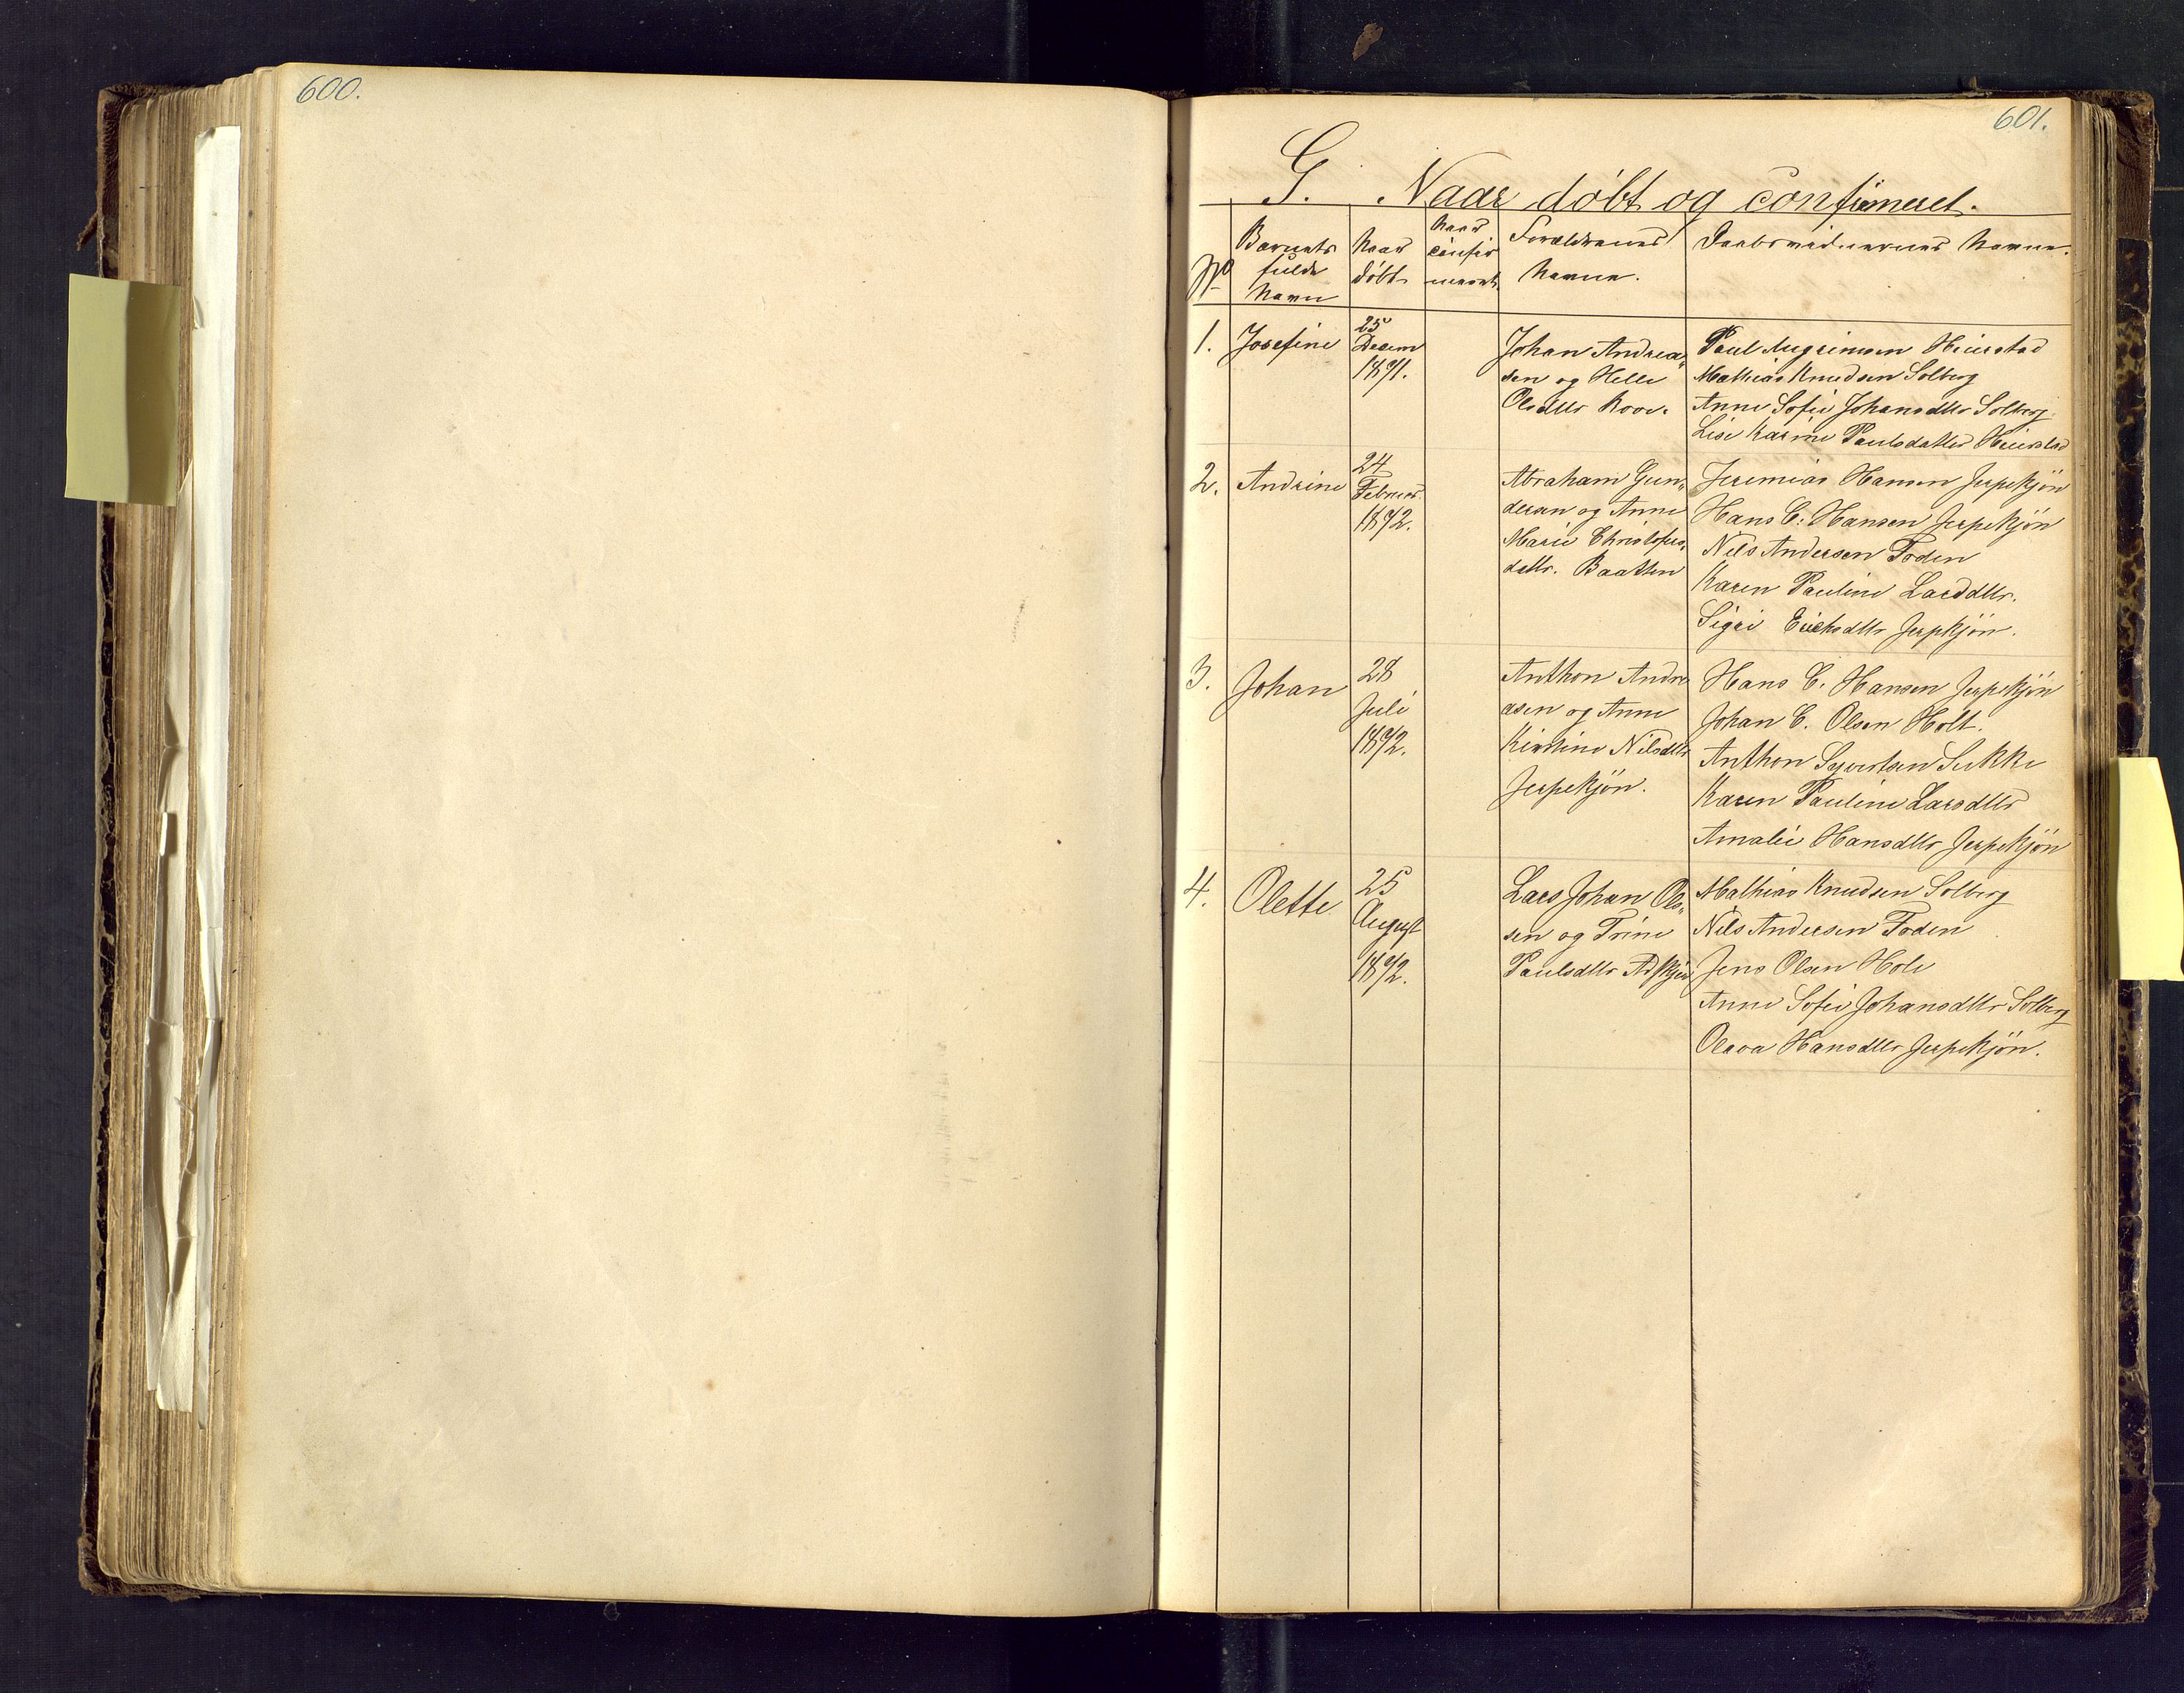 600.
601.
G. Naar döbt og confirmeret.
No
Barnets fulde Navn
Naar döbt
Naar confirmeret.
Forældrenes Navne.
Daabsvidnernes Navne.
1. Josefine
25 Decem 1871.
Johan Andrea„
sen og Helle
Olsdtr Rove.
Paul Augrimsen Heierstad
Mathias Knudsen Solberg
Anne Sofie Johansdtr Solberg
Lise Karine Paulsdatter Heierstad
2. Andrine
24 Februar. 1872.
Abraham Gun„
dersen og Anne
Marie Christofers„
dattr. Baatten
Jeremias Hansen Jerpekjön
Hans C: Hansen Jerpekjön
Nils Andersen Foden
Karen Pauline Larsdtr.
Sigri Eriksdtr Jerpkjön.
3. Johan
28 Juli 1872.
Anthon Andre
asen og Anne
Kirstine Nilsdtr
Jerpekjön.
Hans C. Hansen Jerpekjön
Johan C. Olsen Holt.
Anthon Syvertsen Sukke
Karen Pauline Larsdtr
Amalie Hansdtr Jerpekjön
4. Olette
25 August 1872.
Lars Johan Ols„
sen og Trine
Paulsdtr
Mathias Knudsen Solberg
Nils Andersen Foden
Jens Olsen Hole
Anne Sofie Johansdtr Solberg
Olava Hansdtr Jerpekjön.